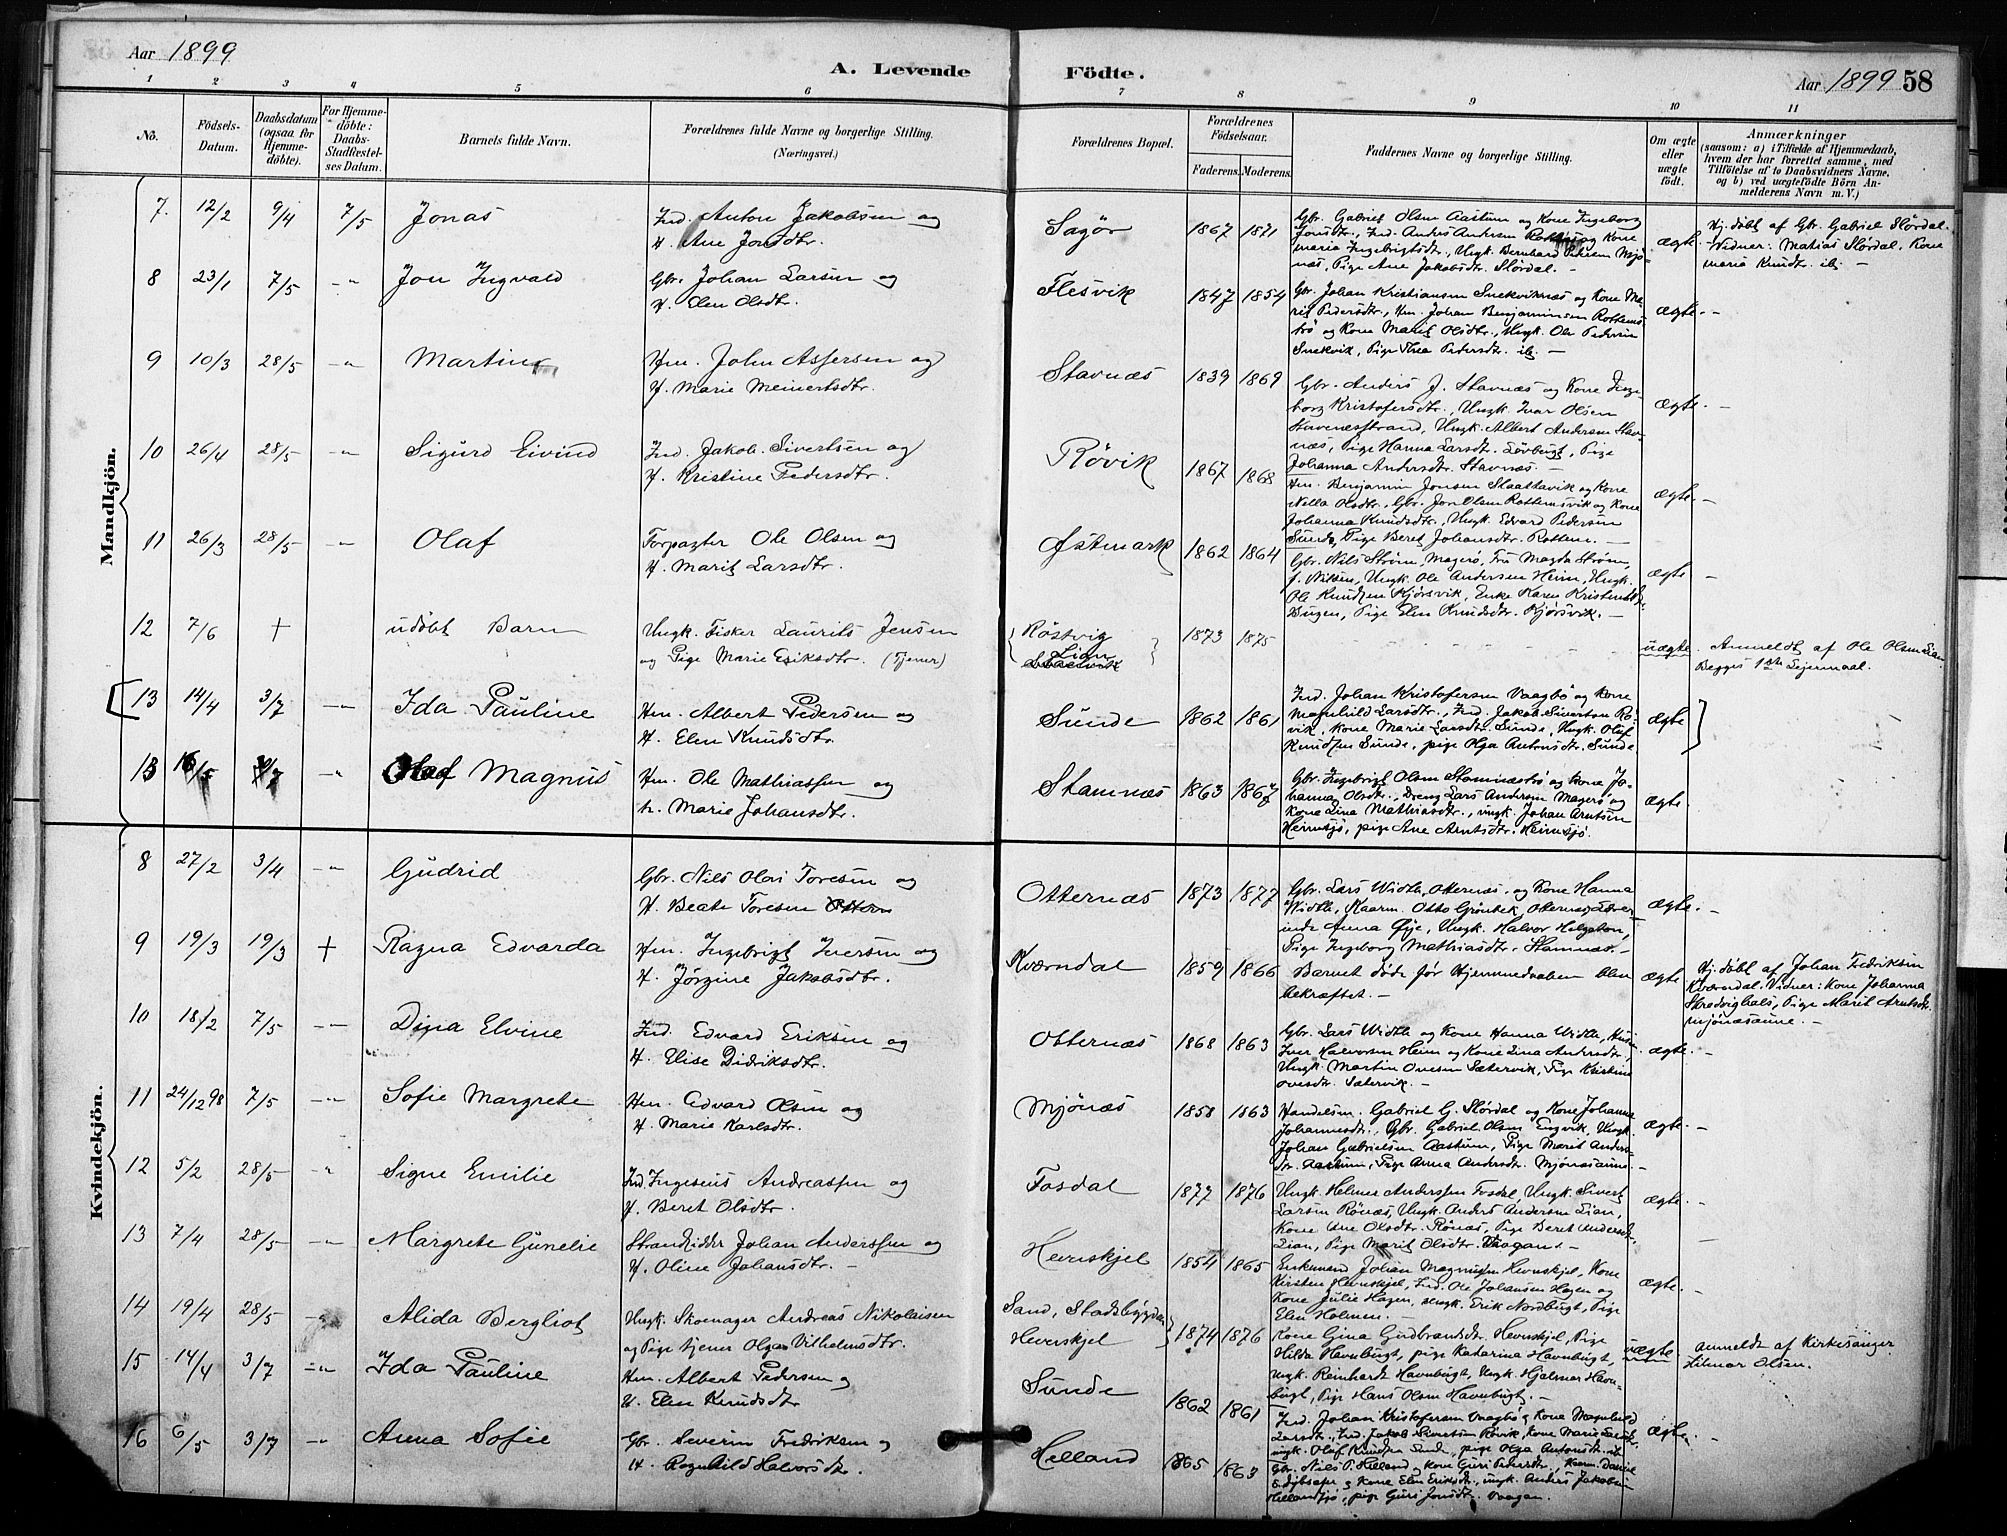 Aar 1899
A. Levende Födte.
Aar 1899 58
1 2 3 4 5 6 7 8 9 10 11
No.
Födsels-Datum.
Daabsdatum (ogsaa for Hjemme-döbte).
For Hjemme-döbte: Daabs-Stadfæstelses Datum.
Barnets fulde Navn.
Forældrenes fulde Navne og borgerlige Stilling. (Næringsvei.)
Forældrenes Bopæl.
Forældrenes Födselsaar.
Faderens. Moderens.
Faddernes Navne og borgerlige Stilling.
Om ægte eller uægte födt.
Anmærkninger
(saasom: a) i Tilfælde af Hjemmedaab, hvem der har forrettet samme, med Tilföielse af to Daabsvidners Navne, og b) ved uægtefödte Börn Anmelderens Navn m. V.)
Mandkjön.
7. 12/2 9/4 7/5 Jonas
Ind. Anton Jakobsen og
H. Ane Jonsdtr.
Sagør 1867 1871
Gbr. Gabriel Olsen Aastum og Kone Ingeborg
Jonsdtr., Ind. Anders Andersen og Kone
Maria Ingebrigtsdtr., Ungk. Bernhard Petersen Mjø-
næs, Pige Ane Jakobsdtr. Slørdal. –
ægte.
Hj. døbt af Gbr. Gabriel Slørdal.
Vidner: Matias Slørdal, Kone
Maria Knudtr. ib. –
8 23/1 7/5 -"- Jon Ingvald
Gbr. Johan Larsen og
H. Elen Olsdtr.
Flesvik 1847 1854
Gbr. Johan Kristiansen Snekviknæs og Kone Ma-
rit Pedersdtr., Hm. Johan Benjaminsen Rottems-
bø og Kone Marit Olsdtr., Ungk. Ole Pedersen
Snekvik, Pige Thea Pedersdtr. ib. –
ægte. –
9 10/3 28/5 -"- Martin
Hm. John Assersen og
H. Marie Meinertsdtr.
Stavnæs 1839 1869
Gbr. Anders J. Stavnæs og Kone Inge-
borg Kristofersdtr., Ungk. Ivar Olsen
Stavnæsstrand, Ungk. Albert Andersen Stav-
næs, Pige Hanna Larsdtr. Løvbugt, Pige
Johanna Andersdtr. Stavnæs. –
ægte. –
10 26/4 28/5 -"- Sigurd Eivind
Ind. Jakob Sivertsen og
H. Kristine Pedersdtr.
Røvik 1867 1868
Hm. Benjamin Jonsen Slaattavik og Kone
Nella Olsdtr., Gbr. Jon Olsen Rottemsvik og Kone
Johanna Knudsdtr., Ungk. Edvard Pedersen
Sunde, Pige Beret Johansdtr. Rottem. –
ægte. –
11 26/3 28/5 -"- Olaf
Forpagter Ole Olsen og
H. Marit Larsdtr.
Østmark 1862 1864
Gbr. Nils Strøm, Magerø, Fru Magda Strøm,
f. Nilsen, Ungk. Ole Andersen Heim, Ungk.
Ole Knudsen Kjørsvik, Enke Karen
Bugen, Pige Elen Knudsdtr. Kjørsvik. –
ægte –
12 7/6 + udøbt Barn
Ungk. Fisker Laurits Jensen
og Pige Marie Eriksdtr. (Tjener)
Røstvig
Lian
1873 1875
uægte.
Anmeldt af Ole Olsen Lian
Begges 1ste Leiermaal.
13 14/4 3/7 -"- Ida Pauline
Hm. Albert Pedersen og
H. Elen Knudsdtr.
Sunde 1862 1861
Ind. Johan Kristofersen Vaagbø og Kone
Magnhild Larsdtr., Ind. Jakob Sivertsen Rø-
vik, Kone Marie Larsdtr. Sunde, Ungk. Oluf
Knudsen Sunde, pige Olga Antonsdtr. Sunde
ægte
13 16/5 2/7 -"- Olaf Magnus
Hm. Ole Mathiassen og
h. Marie Johansdtr.
Stamnæs 1863 1867
Gbr. Ingebrigt Olsen Stamnæsbø og Kone Jo-
hanna Olsdtr., Dreng Lars Andersen Magerø og
Kone Lina Mathiasdtr., ungk. Johan Arntsen
Heimsjø, pige Ane Arntsdtr. Heimsjø.
ægte.
Kvindekjön.
8 27/2 3/4 -"- Gudrid
Gbr. Nils Olai Toresen og
H. Beate Toresen
Otternæs 1873 1877
Gbr. Lars Width, Otternæs, og Kone Hanna
Width, Kaarm. Otto Grönbek, Otternæs,
Anna Øije, Ungk. Halvor Helgeton,
Pige Ingeborg Mathiasdtr. Stamnæs. –
ægte. –
9 19/3 19/3 + Ragna Edvarda
Hm. Ingebrigt Iversen og
H. Jørgine Jakobsdtr.
Kværndal 1859 1866
Barnet døde før Hjemmedaaben blev
bekræftet. –
ægte
Hj. døbt af Johan Fredriksen
Kværndal. Vidner: Kone Johanna
Skredvighals, Pige Marit Arntsdtr.
Mjønæsaune. –
10 18/2 7/5 -"- Dina Elvine
Ind. Edvard Eriksen og
H. Elise Didriksdtr.
Otternæs 1868 1863
Gbr. Lars Width og Kone Hanna Width, Husm.
Iver Halvorsen Heim og Kone Lina Andersdtr.,
Ungk. Martin Ovesen Sætervik, Pige Kristine
Ovesdtr. Sætervik. –
ægte. –
11 24/12 98 7/5 -"- Sofie Margrete
Hm. Edvard Olsen og
H. Marie Karlsdtr.
Mjønæs 1858 1863
Handelsm. Gabriel G. Slørdal og Kone Johanna
Johannesdtr., Gbr. Gabriel Olsen Engvik, Ungk.
Johan Gabrielsen Aastum, Pige Marit Anders-
dtr. Aastum, Pige Anna Andersdtr. Mjønæsaune. –
ægte. –
12 5/2 28/5 -"- Signe Emilie
Ind. Ingenius Andreassen og
H. Beret Olsdtr.
Fosdal 1877 1876
Ungk. Helmer Anderssen Fosdal, Ungk. Sivert
Larsen Rönæs, Ungk. Anders Andersen Lian,
Kone Ane Olsdtr. Rönæs, Pige Beret Andersdtr.
Lian, Pige Marit Olsdtr. Vaagan. –
ægte. –
13 7/4 28/5 -"- Margrete Gunelie
Strandsidder Johan Anderssen og
H. Oline Johansdtr. –
Hevnskjel 1854 1865
Enkemand Johan Magnussen Hevnskjel, Kone
Kirsten Hevnskjel, Ind. Ole Johansen Hagen og
Kone Julie Hagen, Ungk. Erik Nordbugt, Pige
Elen Holmen. –
ægte. –
14 19/4 28/5 -"- Alida Bergliot
Ungk. Skomager Andreas Nikolaisen
og Pige tjener Olga Vilhelmsdtr.
Sand, Stadsbygden
Hevnskjel
1874 1876
Kone Gina Gudbrandsdtr. Hevnskjel, Pige
Hilda Havnbugt, pige Katarina Havnbugt,
Ungk. Reinhardt Havnbugt, Ungk. Hjalmar Havn-
bugt, Pige Hans Olsen Havnbugt. –
uægte
anmeldt af Kirkesanger
Hilmar Olsen.
15 14/4 3/7 -"- Ida Pauline
Hm. Albert Pedersen og
H. Elen Knudsdtr
Sunde 1862 1861
Ind. Johan Kristofersen Vaagbø og Kone Magnhild
Larsdtr., Ind. Jakob Sivertsen Røvik, Kone Marie Larsdtr.
ungk. Oluf Knudsen Sunde, pige Olga Antonsdtr. ib
ægte. –
16 6/5 3/7 -"- Anna Sofie
Gbr. Severin Fredriksen og
H. Ragnhild Halvorsdtr.
Helland 1865 1863
Gbr. Nils P. Helland og Kone Guri Pedersdtr., Kaarm. Daniel
og Kone Elen Eriksdtr., ungk. Anders Jakobsen
Hellandsjø, pige Guri Jonsdtr. Vaagan.